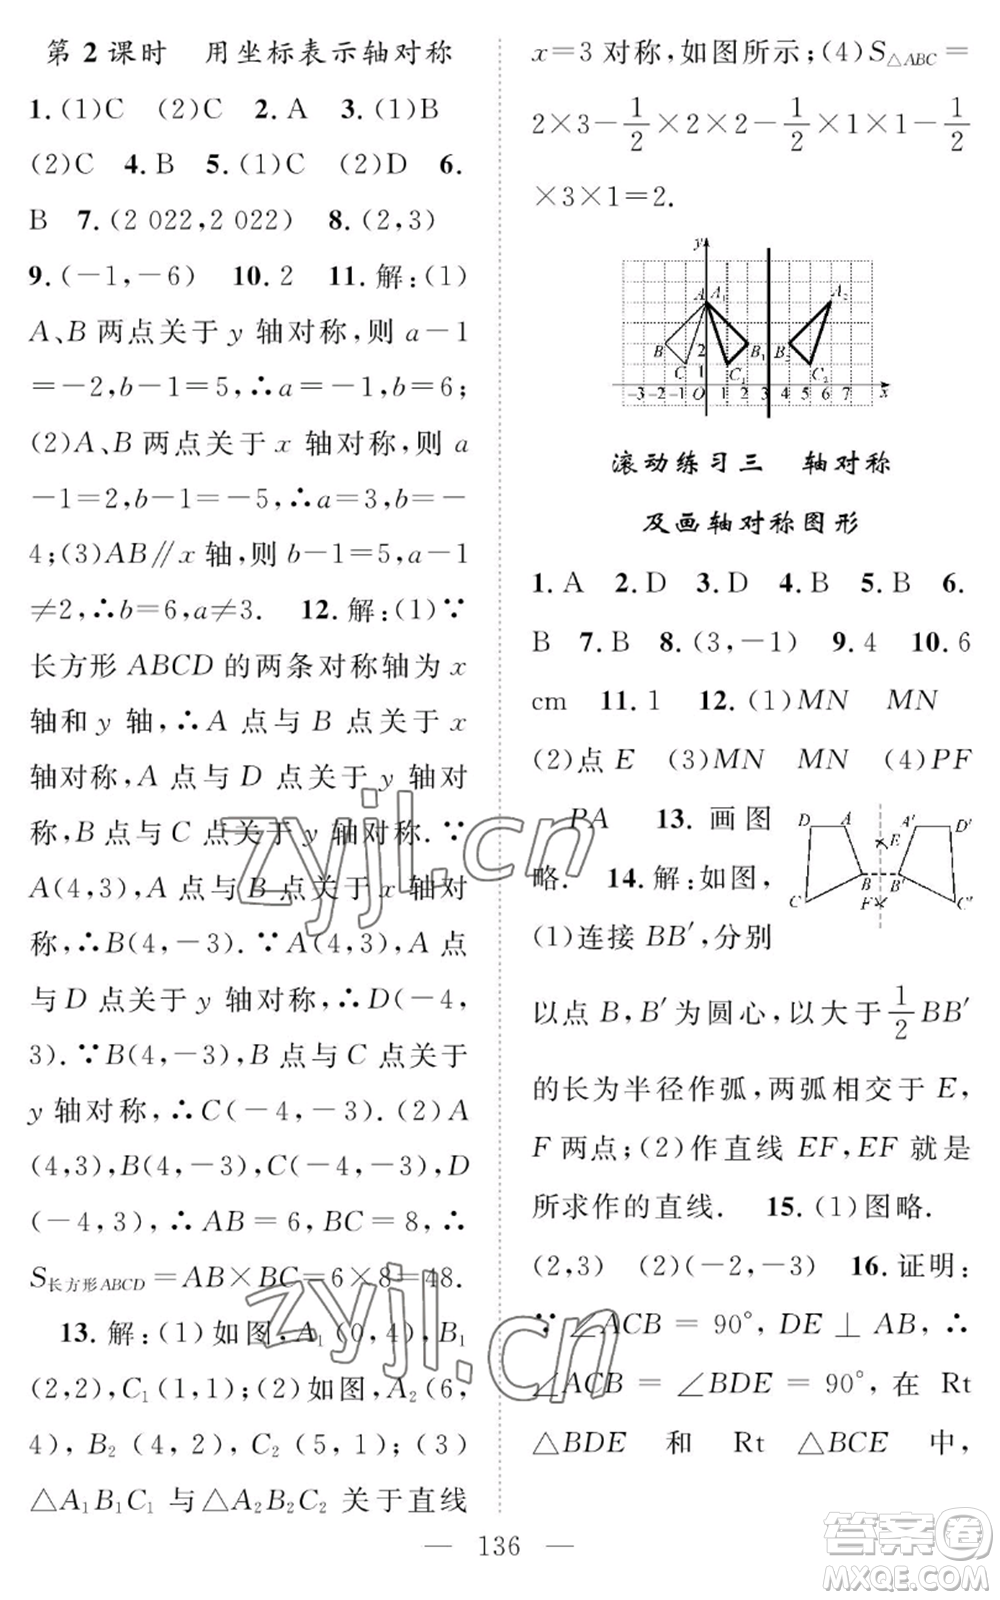 第2课时　用坐标表示轴对称
1.(1)C　(2)C　2.A　3.(1)B
(2)C　4.B　5.(1)C　(2)D　6.
B　7.(2 022,2 022)　8.(2,3)
9.(－1,－6)　10.2　11.解:(1)
A、B两点关于y轴对称,则a－1
＝－2,b－1＝5,∴a＝－1,b＝6;
(2)A、B两点关于x轴对称,则a
－1＝2,b－1＝－5,∴a＝3,b＝－
4;(3)AB∥x轴,则b－1＝5,a－1
≠2,∴b＝6,a≠3.　12.解:(1)∵
长方形ABCD的两条对称轴为x
轴和y轴,∴A点与B点关于x
轴对称,A点与D点关于y轴对
称,B点与C点关于y轴对称.∵
A(4,3),A点与B点关于x轴对
称,∴B(4,－3).∵A(4,3),A点
与D点关于y轴对称,∴D(－4,
3).∵B(4,－3),B点与C点关于
y轴对称,∴C(－4,－3).(2)A
(4,3),B(4,－3),C(－4,－3),D
(－4,3),∴AB＝6,BC＝8,∴
S长方形ABCD＝AB×BC＝6×8＝48.
13.解:(1)如图,A₁(0,4),B₁
(2,2),C₁(1,1);(2)如图,A₂(6,
4),B₂(4,2),C₂(5,1);(3)
△A₁B₁C₁与△A₂B₂C₂关于直线
x＝3对称,如图所示;(4)S△ABC＝
2×3－1/2×2×2－1/2×1×1－1/2
×3×1＝2.
y
A A₁ A₂
B 2 B₁ B₂
C 1 C₁ C₂
－3 －2 －1 O 1 2 3 4 5 6 7 x
滚动练习三　轴对称
及画轴对称图形
1.A　2.D　3.D　4.B　5.B　6.
B　7.B　8.(3,－1)　9.4　10.6
cm　11.1　12.(1)MN　MN
(2)点E　(3)MN　MN　(4)PF
PA　13.画图
略.　14.解:如图,
(1)连接BB′,分别
D A A′ D′
E
B B′
C F C′
以点B,B′为圆心,以大于1/2BB′
的长为半径作弧,两弧相交于E,
F两点;(2)作直线EF,EF就是
所求作的直线.　15.(1)图略.
(2,3)　(2)(－2,－3)　16.证明:
∵∠ACB＝90°,DE⊥AB,∴
∠ACB＝∠BDE＝90°,在Rt
△BDE和Rt△BCE中,
— 136 —
zyjl.cn
zyjl.cn
答案圈
MXQE.COM